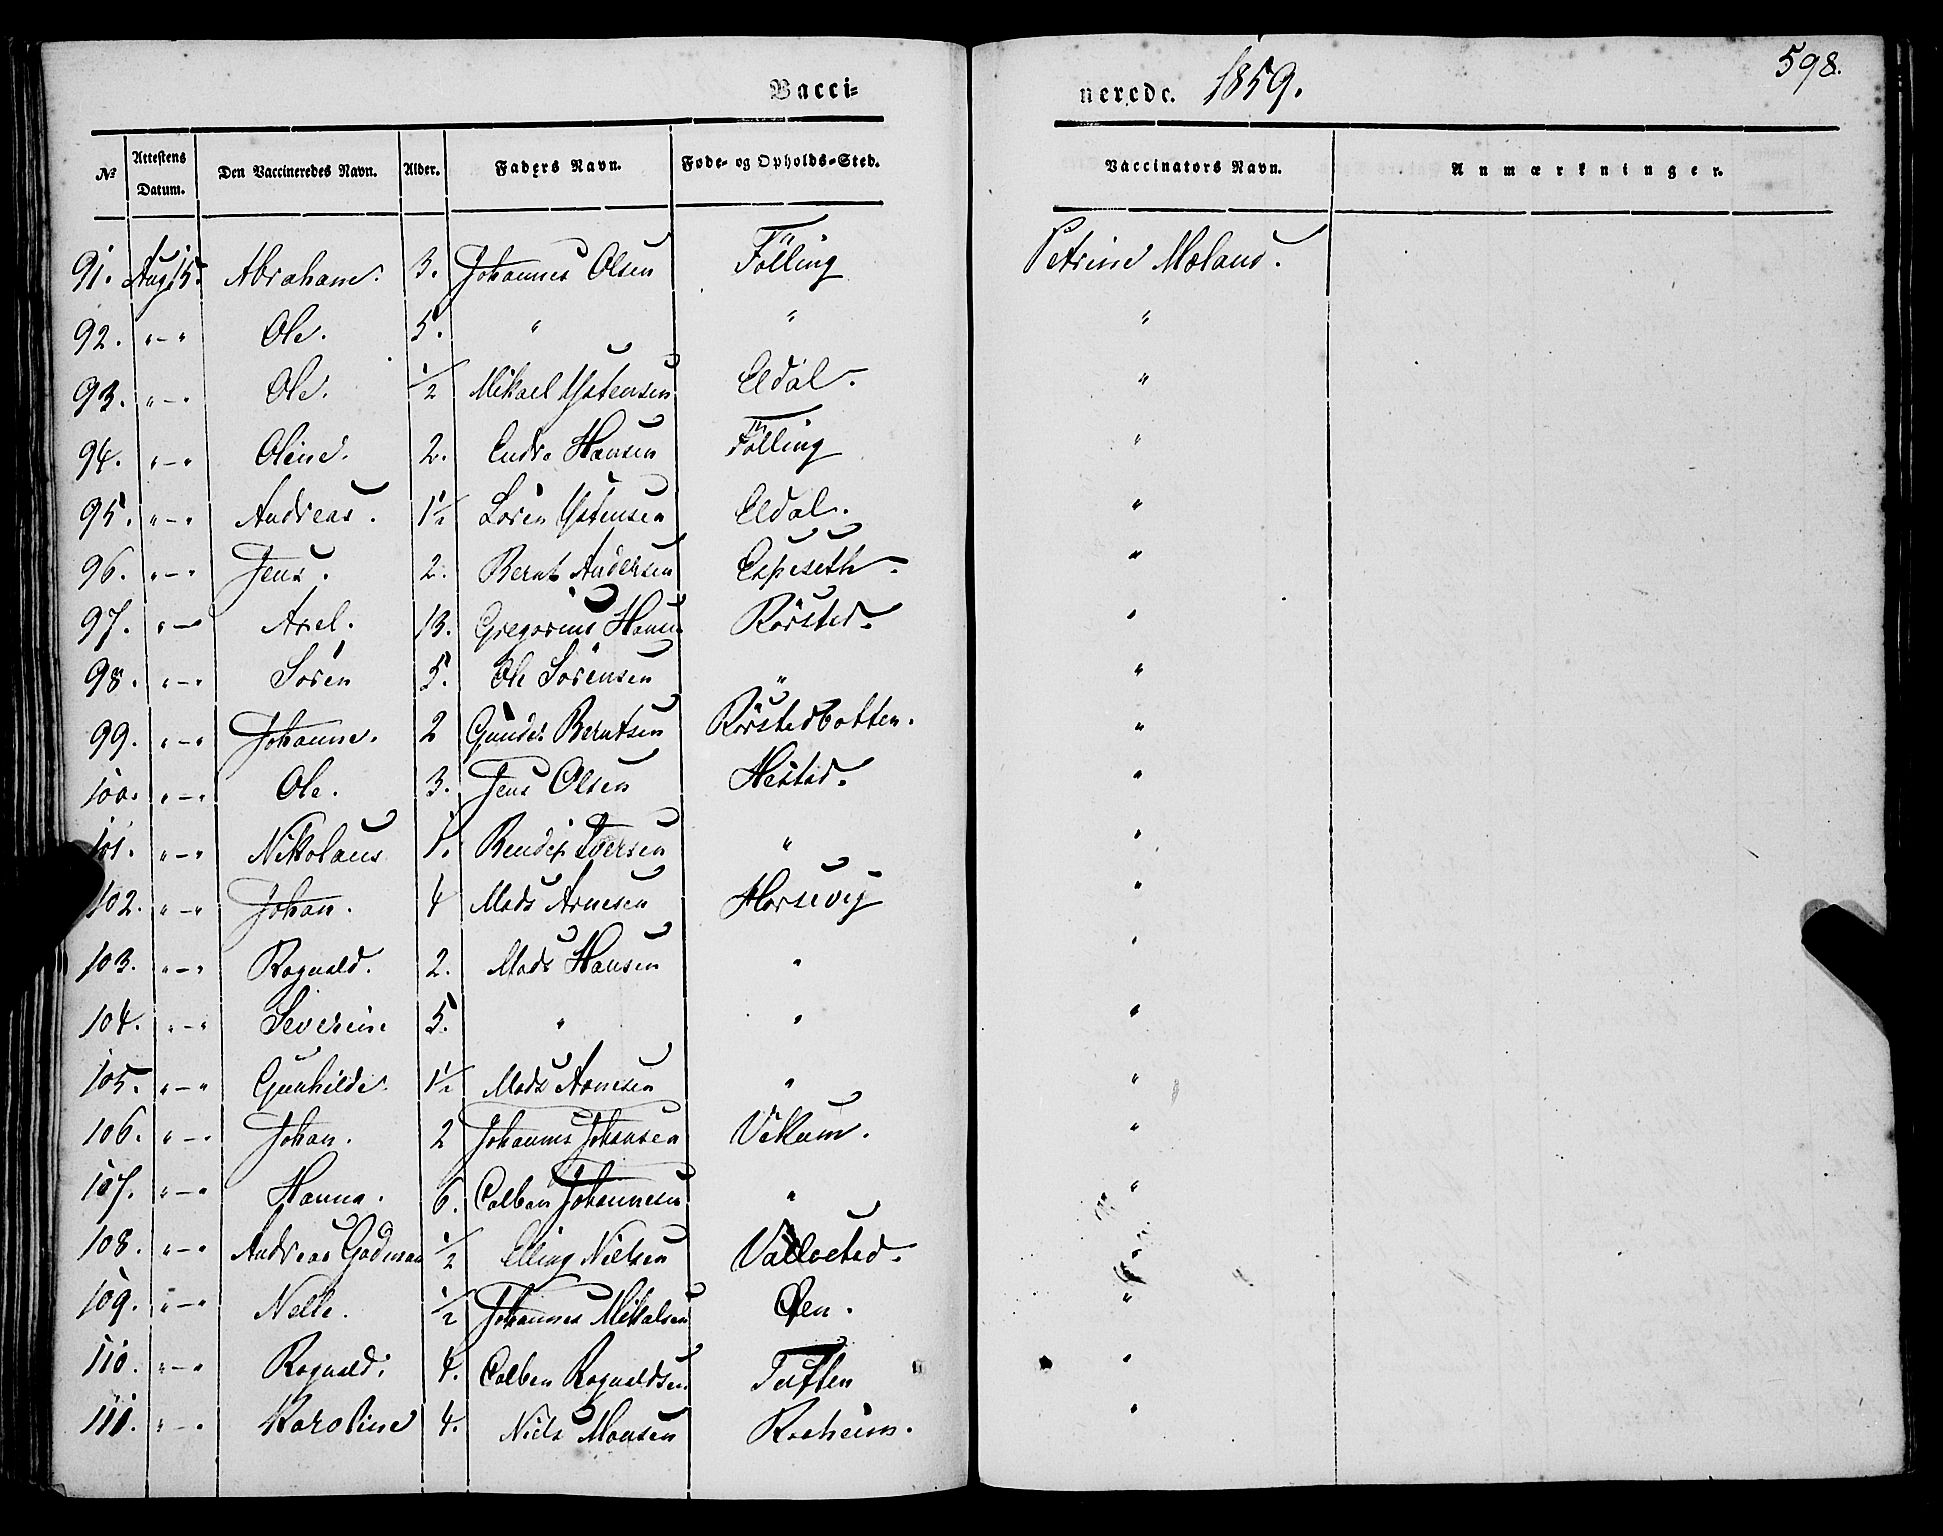 598.
Vacci- nerede. 1859.
№ Attestens Datum. Den Vaccineredes Navn. Alder. Faders Navn. Føde- og Opholds-Sted. Vaccinators Navn. Anmærkninger.
91. Aug 15. Abraham. 3. Johannes Olsen Fölling Petrine Mæland.
92. " – " Ole. 5. " " "
93. " – " Ole. ½ Mikael Ystensen Eldal. "
94. " – " Oline. 2. Endre Hansen Fölling "
95. " – " Andreas. 1½ Sören Ystensen Eldal. "
96. " – " Jens. 2. Bernt Andersen Espeseth. "
97. " – " Axel. 13. Gregorius Hansen Rörsted. "
98. " – " Sören 5. Ole Sörensen " "
99. " – " Johanne. 2 Gunder Berntsen Rörstedbotten. "
100. " – " Ole. 3. Jens Olsen Hestad. "
101. " – " Nikolaus 1. Bendix Iversen " "
102. " – " Johan. 4 Mads Arnesen Horsevig "
103. " – " Ragnald. 2. Mads Hansen " "
104. " – " Severine 5. " " "
105. " – " Gunhilde. 1½ Mads Arnesen " "
106. " – " Johan. 2 Johannes Johansen Vikum. "
107. " – " Hanna. 6. Colben Johannesen " "
108. " – " Andreas ½ Elling Nielsen "
109. " – " Nelle. ½ Johannes Mikalsen Öen. "
110. " – " Ragnald. 4. Colben Ragnaldsen Tuften "
111. " – " Karoline 4. Niels Monsen "